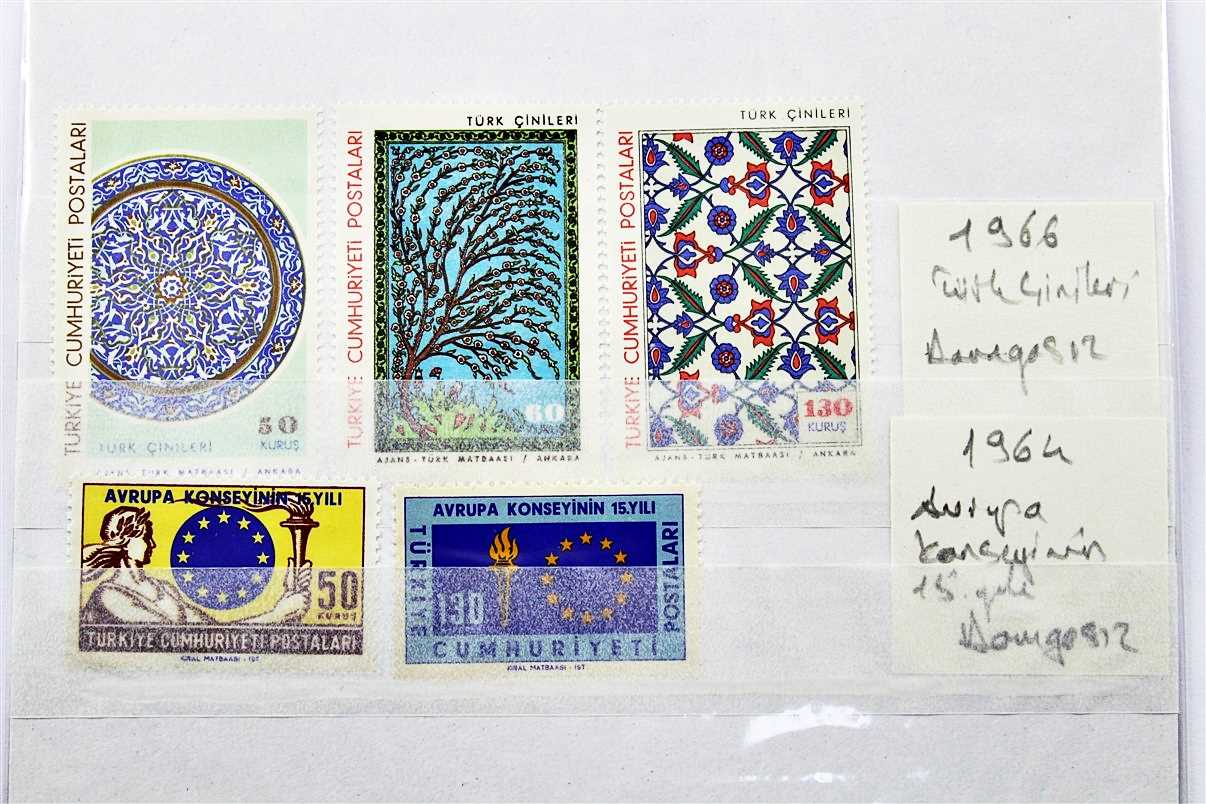 TÜRKİYE CUMHURİYETİ POSTALARI
50
KURUŞ
TÜRK ÇİNİLERİ
AJANS-TÜRK MATBAASI / ANKARA
TÜRK ÇİNİLERİ
TÜRKİYE CUMHURİYETİ POSTALARI
60
KURUŞ
AJANS-TÜRK MATBAASI / ANKARA
TÜRK ÇİNİLERİ
TÜRKİYE CUMHURİYETİ POSTALARI
130
KURUŞ
AJANS-TÜRK MATBAASI / ANKARA
1966
Türk Çinileri
Damgasız
AVRUPA KONSEYİNİN 15.YILI
50
KURUŞ
TÜRKİYE CUMHURİYETİ POSTALARI
KIRAL MATBAASI-IST
AVRUPA KONSEYİNİN 15.YILI
TÜRKİYE
130
POSTALARI
CUMHURİYETİ
KIRAL MATBAASI-IST
1964
Avrupa
Konseyinin
15.yılı
Damgasız